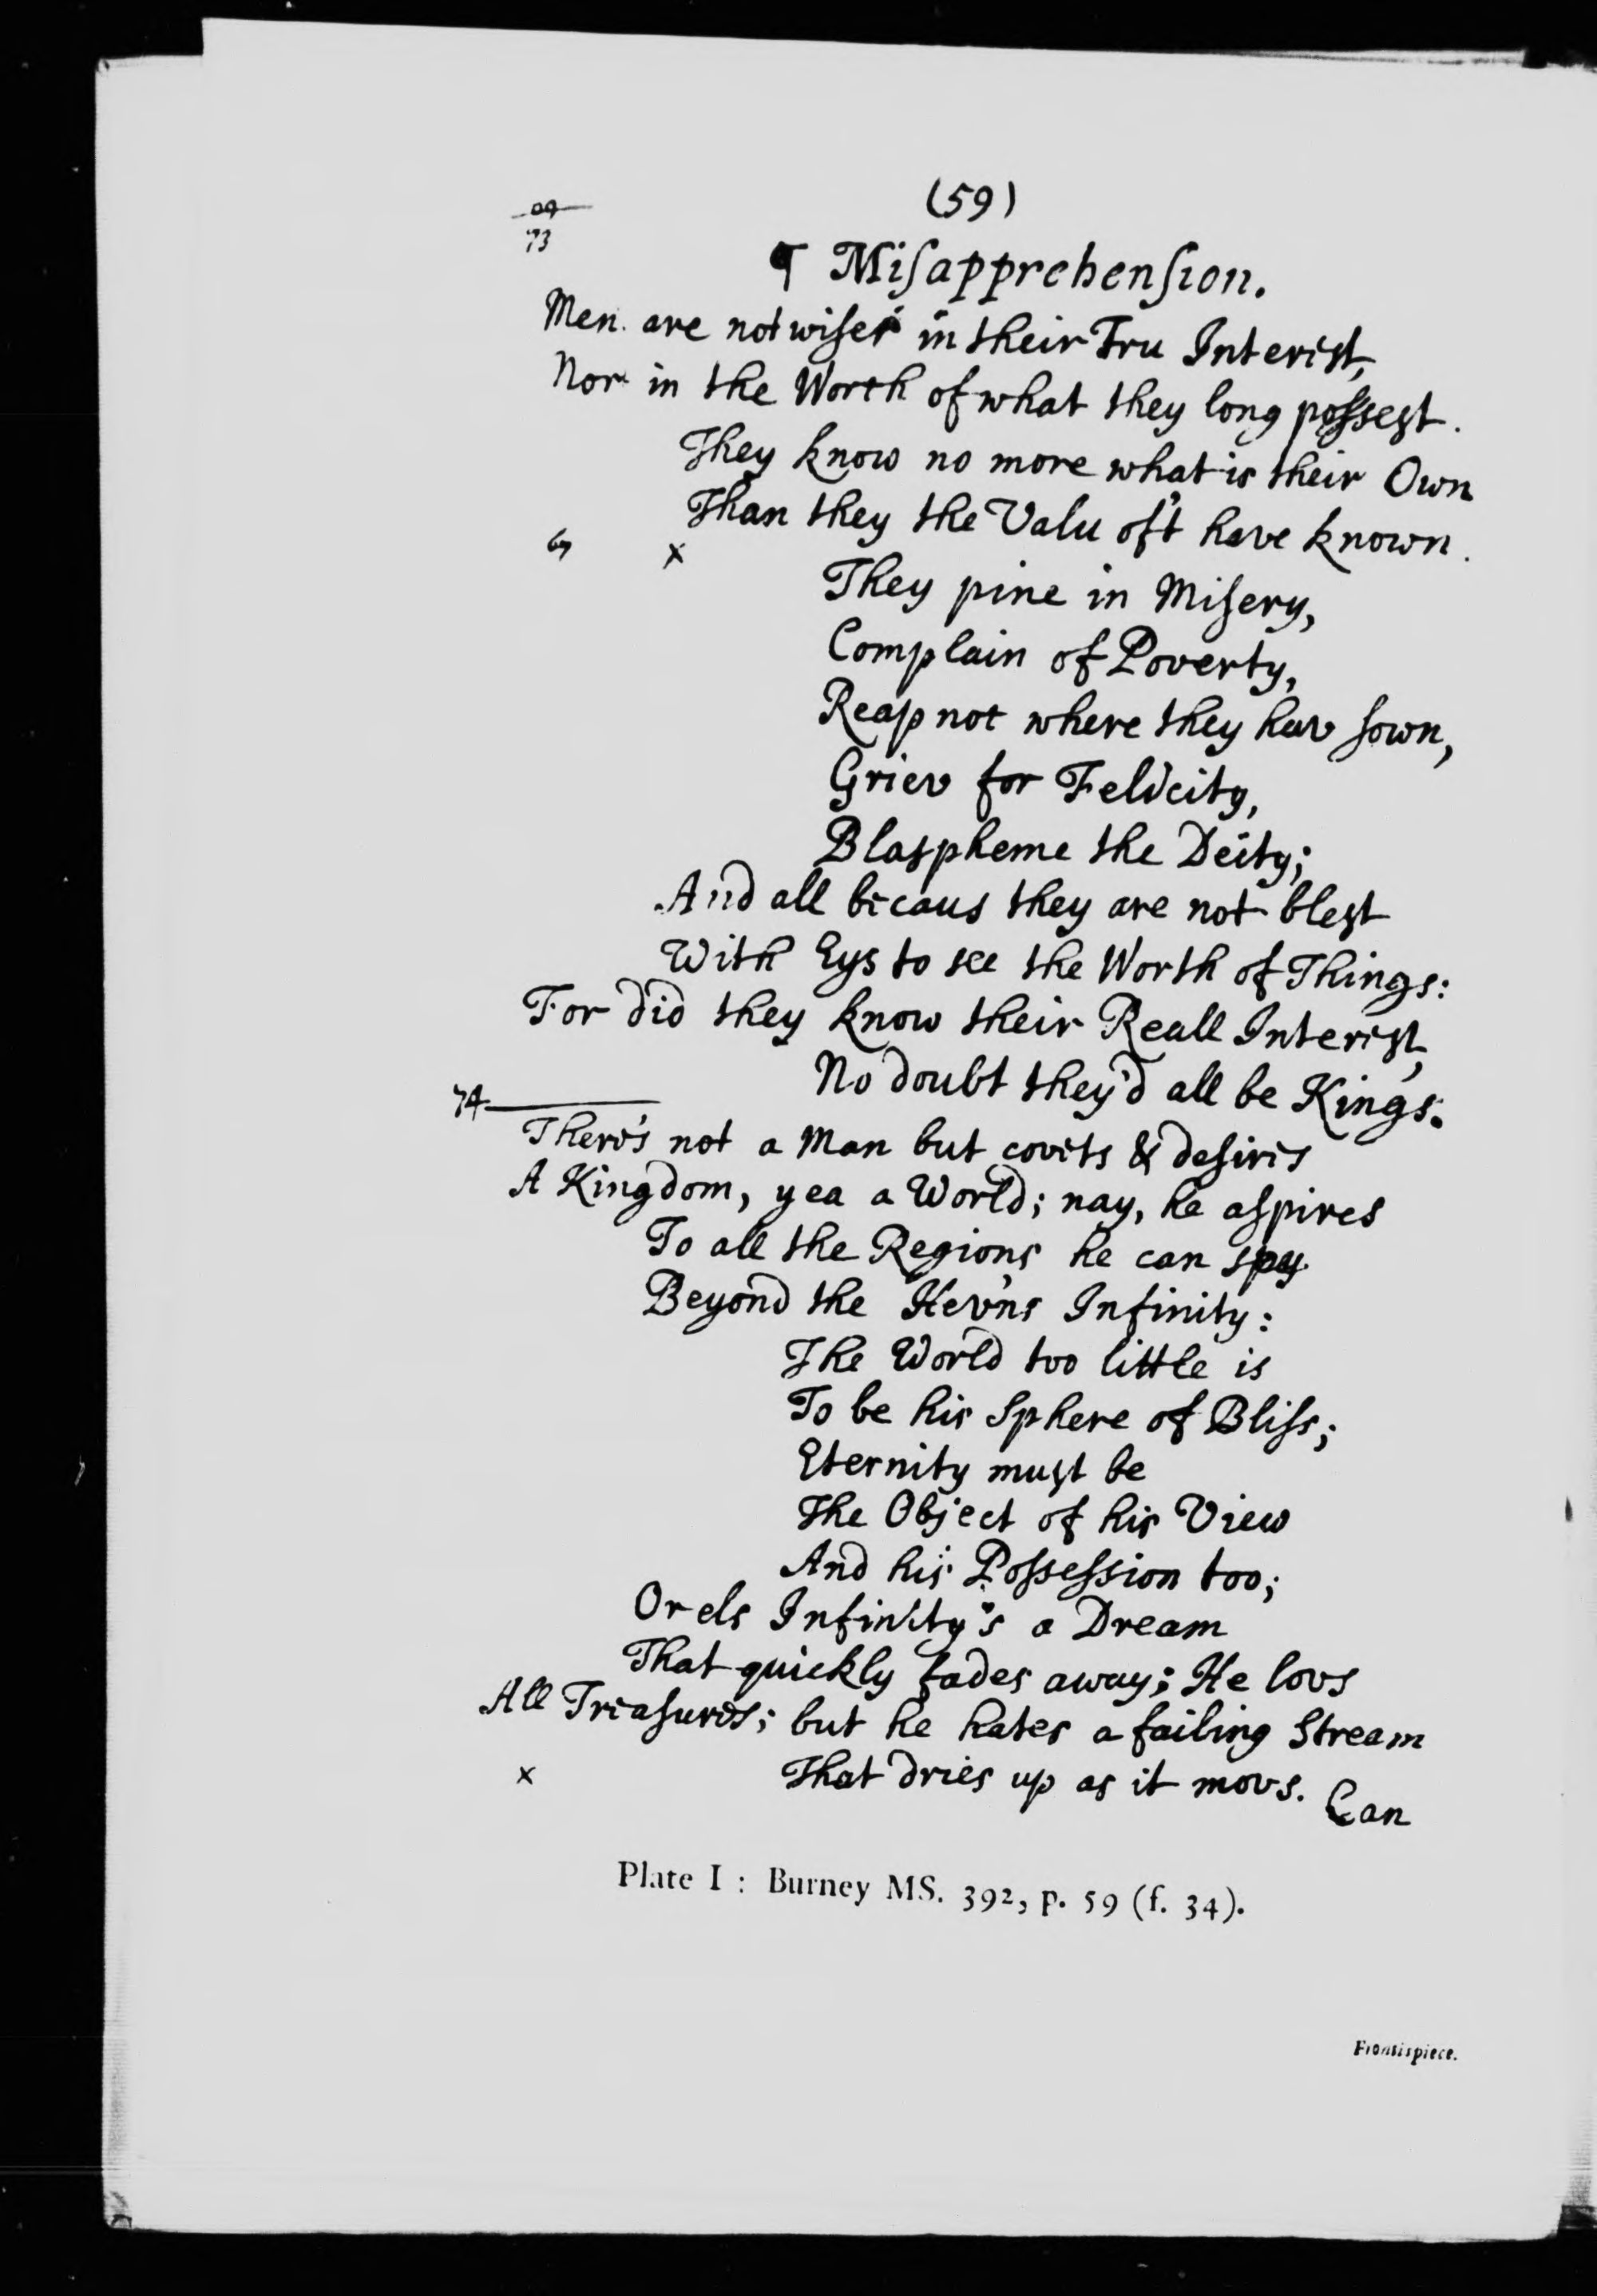 (59)
73
¶ Miſapprehenſion.
Men are not wiſer in their Tru Intereſt,
Nor in the Worth of what they long poſsest.
They know no more what is their Own
Than they the Valu of't have known.
x
They pine in Miſery,
Complain of Poverty,
Reap not where they hav ſown,
Griev for Felicity,
Blaspheme the Deity;
And all becaus they are not blest
With Eys to see the Worth of Things:
For did they know their Reall Interest,
No doubt they'd all be Kings.
74
There's not a Man but covets & deſires
A Kingdom, yea a World; nay, he aſpires
To all the Regions he can spy
Beyond the Hev'ns Infinity:
The World too little is
To be his Sphere of Bliſs;
Eternity must be
The Object of his View
And his Poſseſsion too;
Or els Infinity's a Dream
That quickly fades away; He lovs
All Treaſures; but he hates a failing Stream
x That dries up as it movs.
Can
Plate I : Burney MS. 392, p. 59 (f. 34).
Frontispiece.